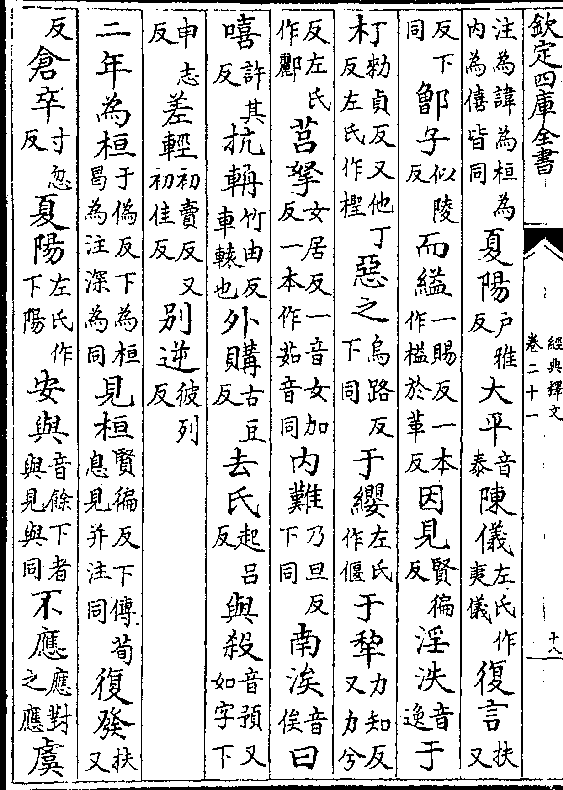 欽定四庫全書
經典釋文
卷二十一
十八
注為諱為桓為内為僖皆同夏陽户雅反大平音泰陳儀左氏作夷儀復言扶又
反下同鄫子似陵反而縊一賜反一本作檻於革反因見賢徧反淫泆音逸于
朾丁勑貞反又他丁反左氏作檉惡之烏路反下同于纓左氏作偃于犂力知反又力兮
反左氏作酈莒挐女居反一音女加反一本作茹音同内難乃旦反下同南涘音俟曰
嘻許其反抗輈竹由反車轅也外購古豆反去氏起吕反與殺音預又如字下
申志反差輕初賣反又初佳反别逆彼列反
二年為桓于偽反下為桓曷為注深為同見桓賢徧反下傳荀息見并注同復發扶又
反倉卒寸忽反夏陽左氏作下陽安與音餘下者與見與同不應應對之應虞